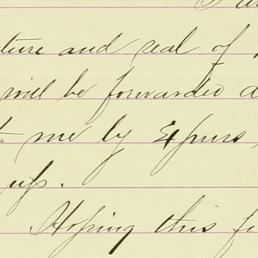 ture and seal of
will be forwarded
to me by Express
up.
Hoping this